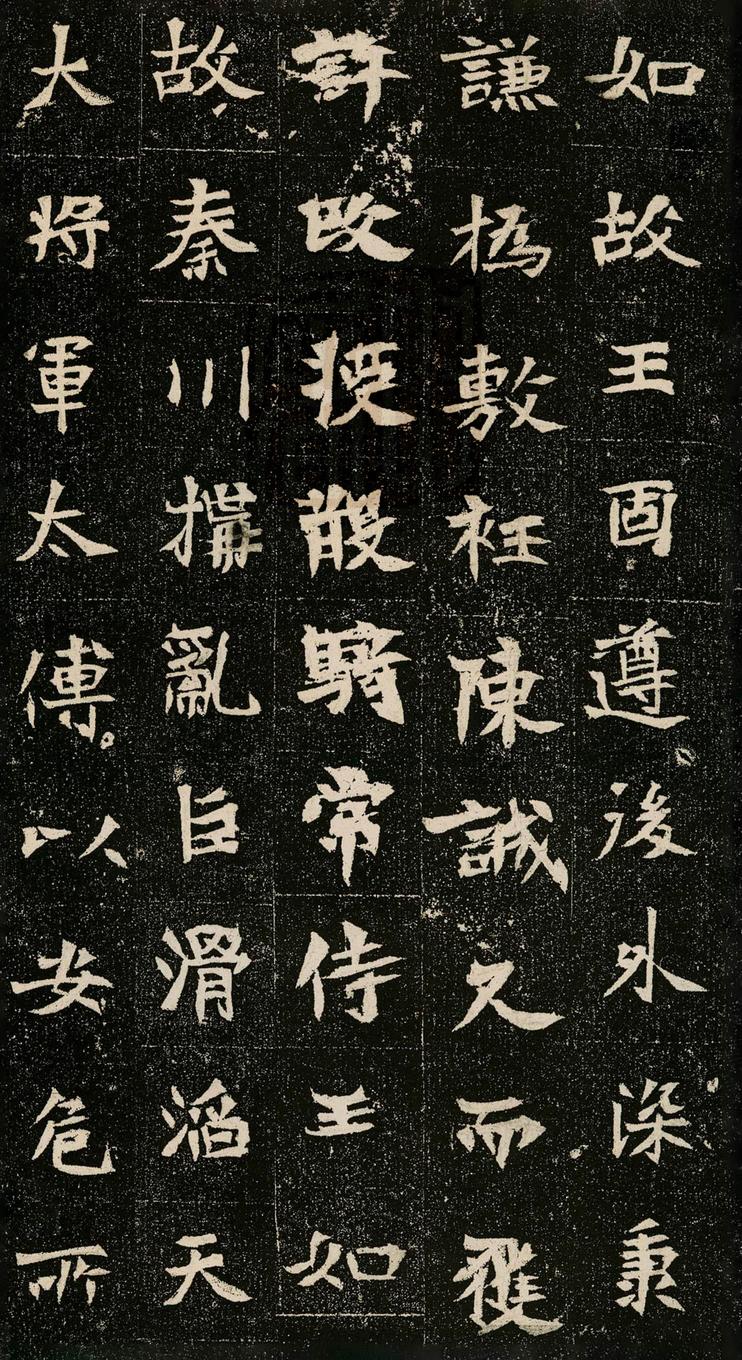 如故王固遵後外深秉
謙撝敷衽陳誠久而獲
許改授散騎常侍王如
故秦川搆亂巨滑滔天
大將軍太傅以安危所